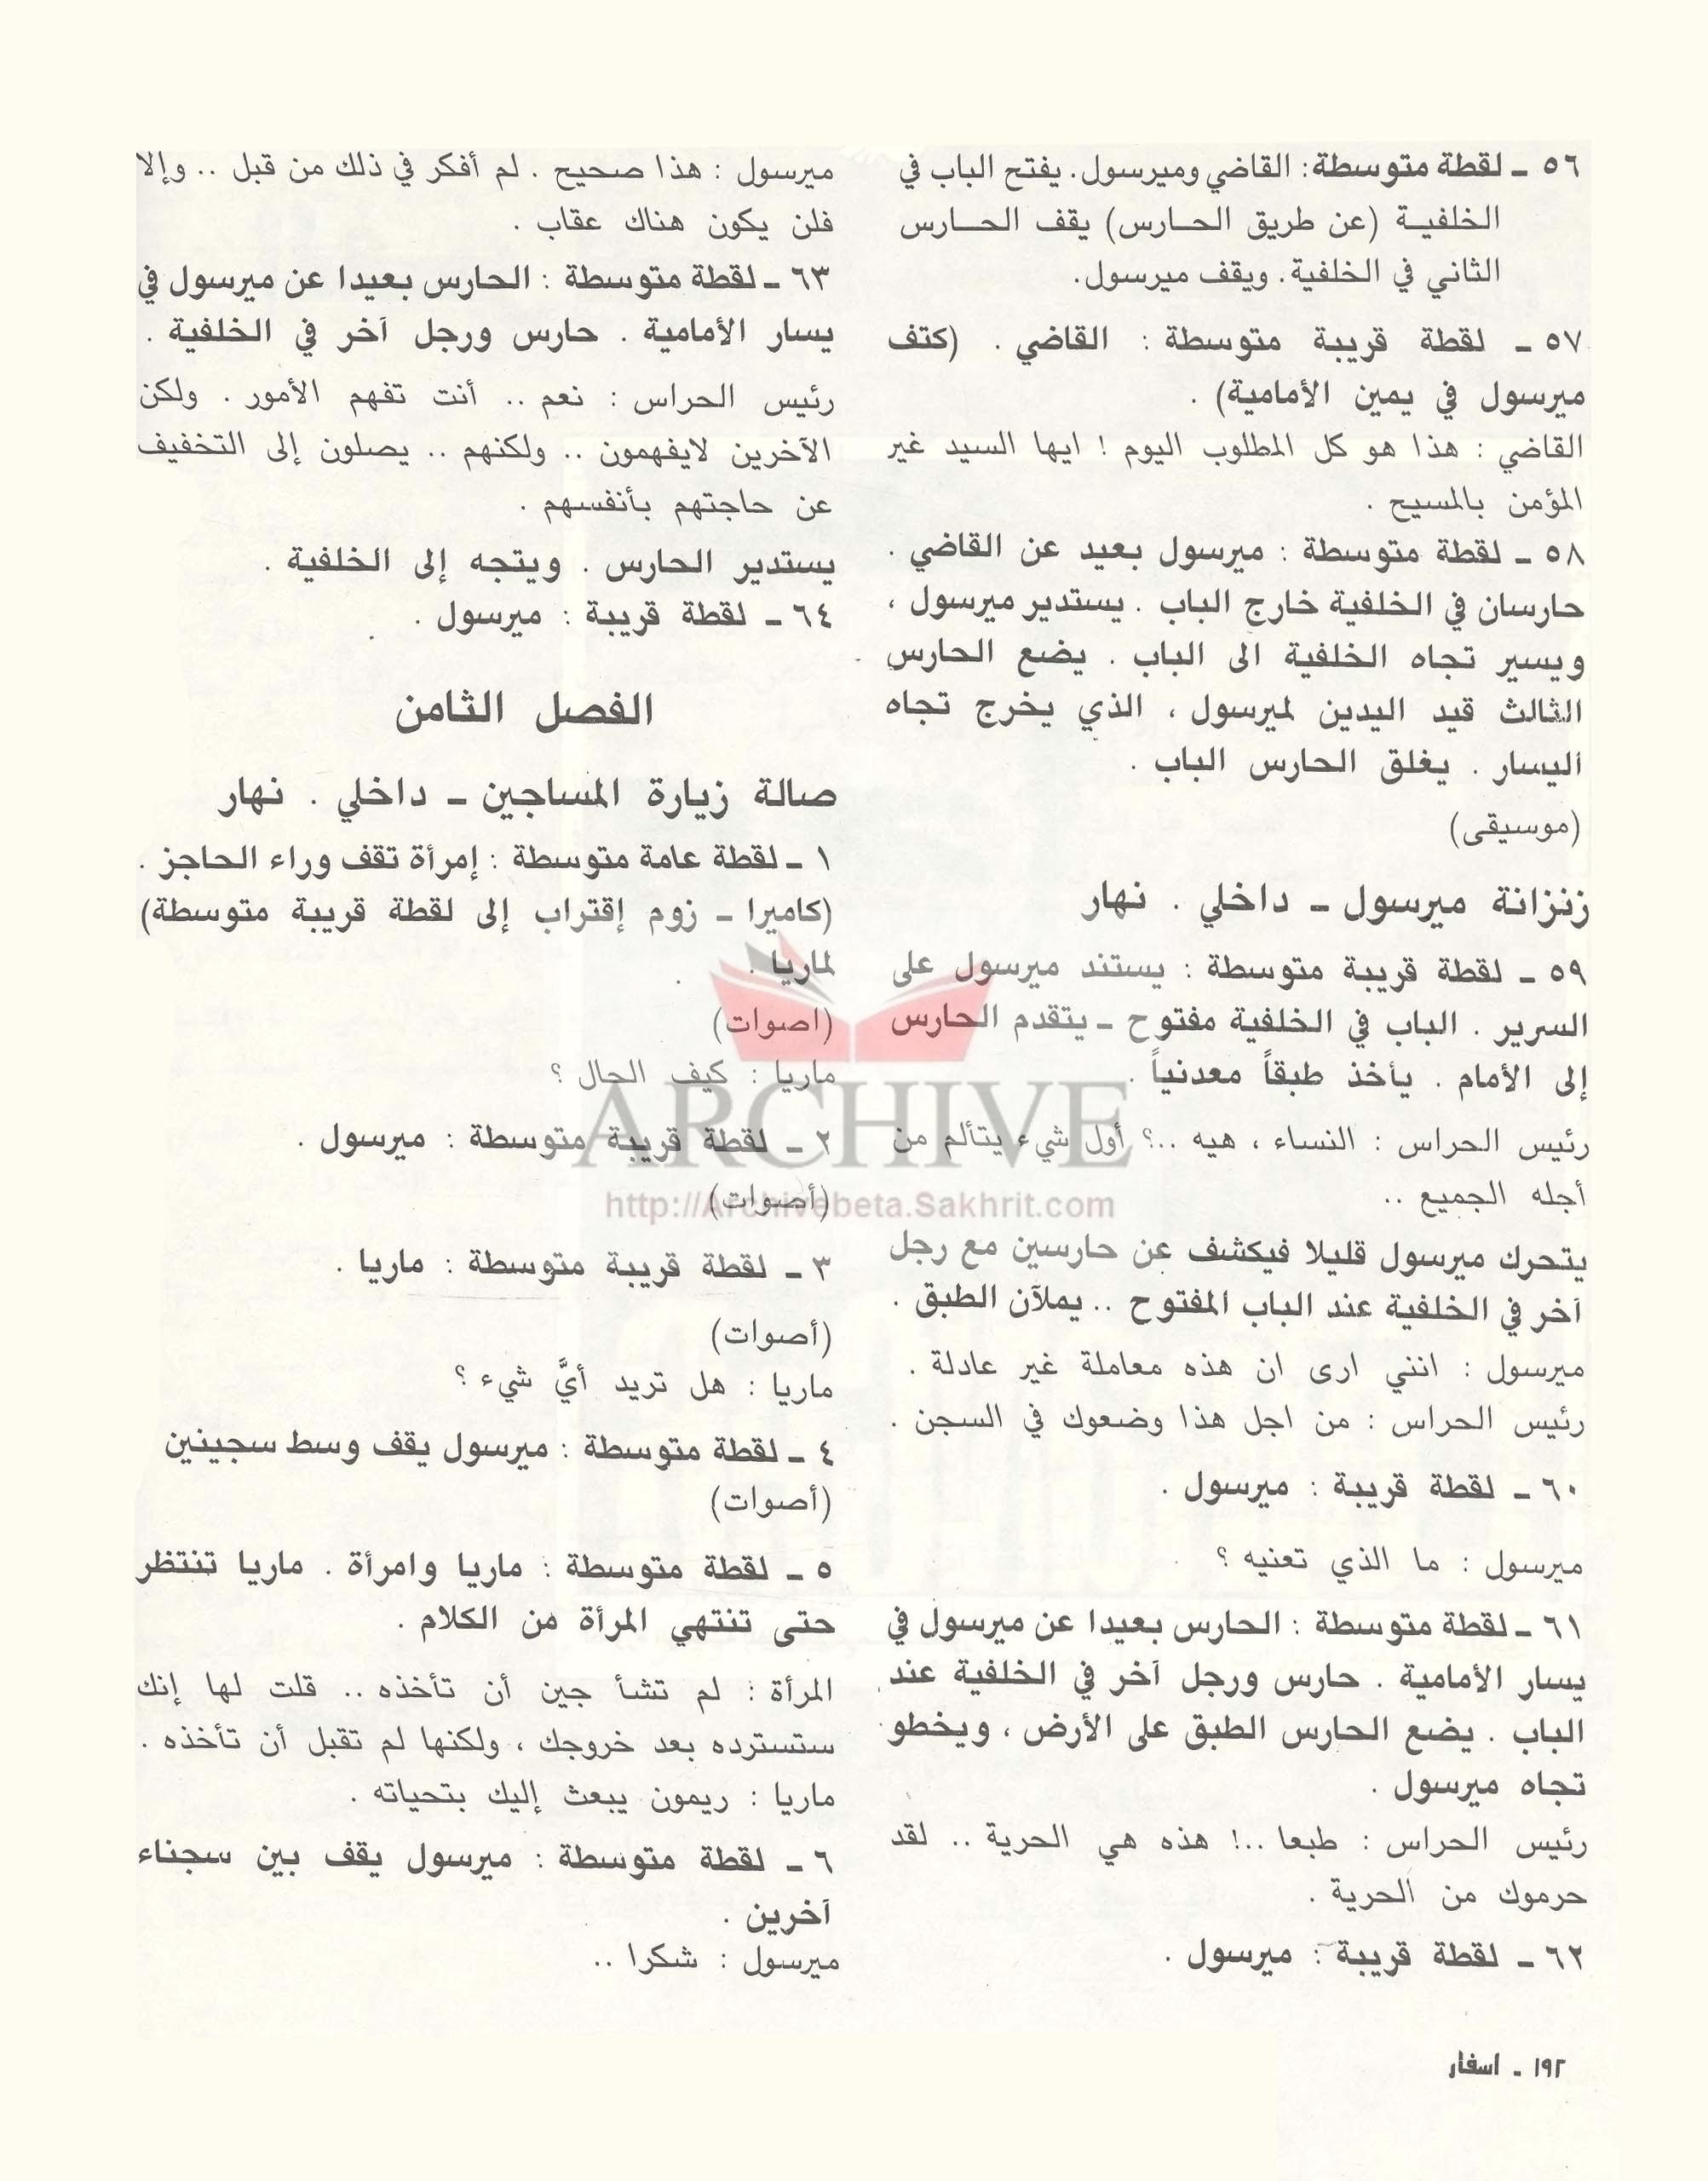 ٥٦ ـ لقطة متوسطة: القاضي وميرسول. يفتح الباب في
الخلفيـة (عن طريق الحـارس) يقف الحـارس
الثاني في الخلفية. ويقف ميرسول.
٥٧ ـ لقطة قريبة متوسطة : القاضي . (كتف
ميرسول في يمين الأمامية) .
القاضي : هذا هو كل المطلوب اليوم ! ايها السيد غير
المؤمن بالمسيح .
٥٨ ـ لقطة متوسطة : ميرسول بعيد عن القاضي .
حارسان في الخلفية خارج الباب . يستدير ميرسول ،
ويسير تجاه الخلفية الى الباب . يضع الحارس
الثالث قيد اليدين لميرسول ، الذي يخرج تجاه
اليسار . يغلق الحارس الباب .
(موسيقى)
زنزانة ميرسول ـ داخلي . نهار
٥٩ ـ لقطة قريبة متوسطة : يستند ميرسول على
السرير . الباب في الخلفية مفتوح ـ يتقدم الحارس
إلى الأمام . يأخذ طبقاً معدنياً .
رئيس الحراس : النساء ، هيه ..؟ أول شيء يتألم من
أجله الجميع ..
يتحرك ميرسول قليلا فيكشف عن حارسين مع رجل
آخر في الخلفية عند الباب المفتوح .. يملآن الطبق .
ميرسول : انني ارى ان هذه معاملة غير عادلة .
رئيس الحراس : من اجل هذا وضعوك في السجن .
٦٠ ـ لقطة قريبة : ميرسول .
ميرسول : ما الذي تعنيه ؟
٦١ ـ لقطة متوسطة : الحارس بعيدا عن ميرسول في
يسار الأمامية . حارس ورجل آخر في الخلفية عند
الباب . يضع الحارس الطبق على الأرض ، ويخطو
تجاه ميرسول .
رئيس الحراس : طبعا ..! هذه هي الحرية .. لقد
حرموك من الحرية .
٦٢ ـ لقطة قريبة : ميرسول .
ميرسول : هذا صحيح . لم أفكر في ذلك من قبل .. وإلا
فلن يكون هناك عقاب .
٦٣ ـ لقطة متوسطة : الحارس بعيدا عن ميرسول في
يسار الأمامية . حارس ورجل آخر في الخلفية .
رئيس الحراس : نعم .. أنت تفهم الأمور . ولكن
الآخرين لايفهمون .. ولكنهم .. يصلون إلى التخفيف
عن حاجتهم بأنفسهم .
يستدير الحارس . ويتجه إلى الخلفية .
٦٤ ـ لقطة قريبة : ميرسول .
الفصل الثامن
صالة زيارة المساجين ـ داخلي . نهار
١ ـ لقطة عامة متوسطة : إمرأة تقف وراء الحاجز .
(كاميرا ـ زوم إقتراب إلى لقطة قريبة متوسطة)
لماريا .
(اصوات)
ماريا : كيف الحال ؟
٢ ـ لقطة قريبة متوسطة : ميرسول .
(أصوات)
٣ ـ لقطة قريبة متوسطة : ماريا .
(أصوات)
ماريا : هل تريد أيَّ شيء ؟
٤ ـ لقطة متوسطة : ميرسول يقف وسط سجينين
(أصوات)
٥ ـ لقطة متوسطة : ماريا وامرأة . ماريا تنتظر
حتى تنتهي المرأة من الكلام .
المرأة : لم تشأ جين أن تأخذه .. قلت لها إنك
ستسترده بعد خروجك ، ولكنها لم تقبل أن تأخذه .
ماريا : ريمون يبعث إليك بتحياته .
٦ ـ لقطة متوسطة : ميرسول يقف بين سجناء
آخرين .
ميرسول : شكرا ..
١٩٢ ـ اسفار
ARCHIVE
http://Archivebeta.Sakhrit.com